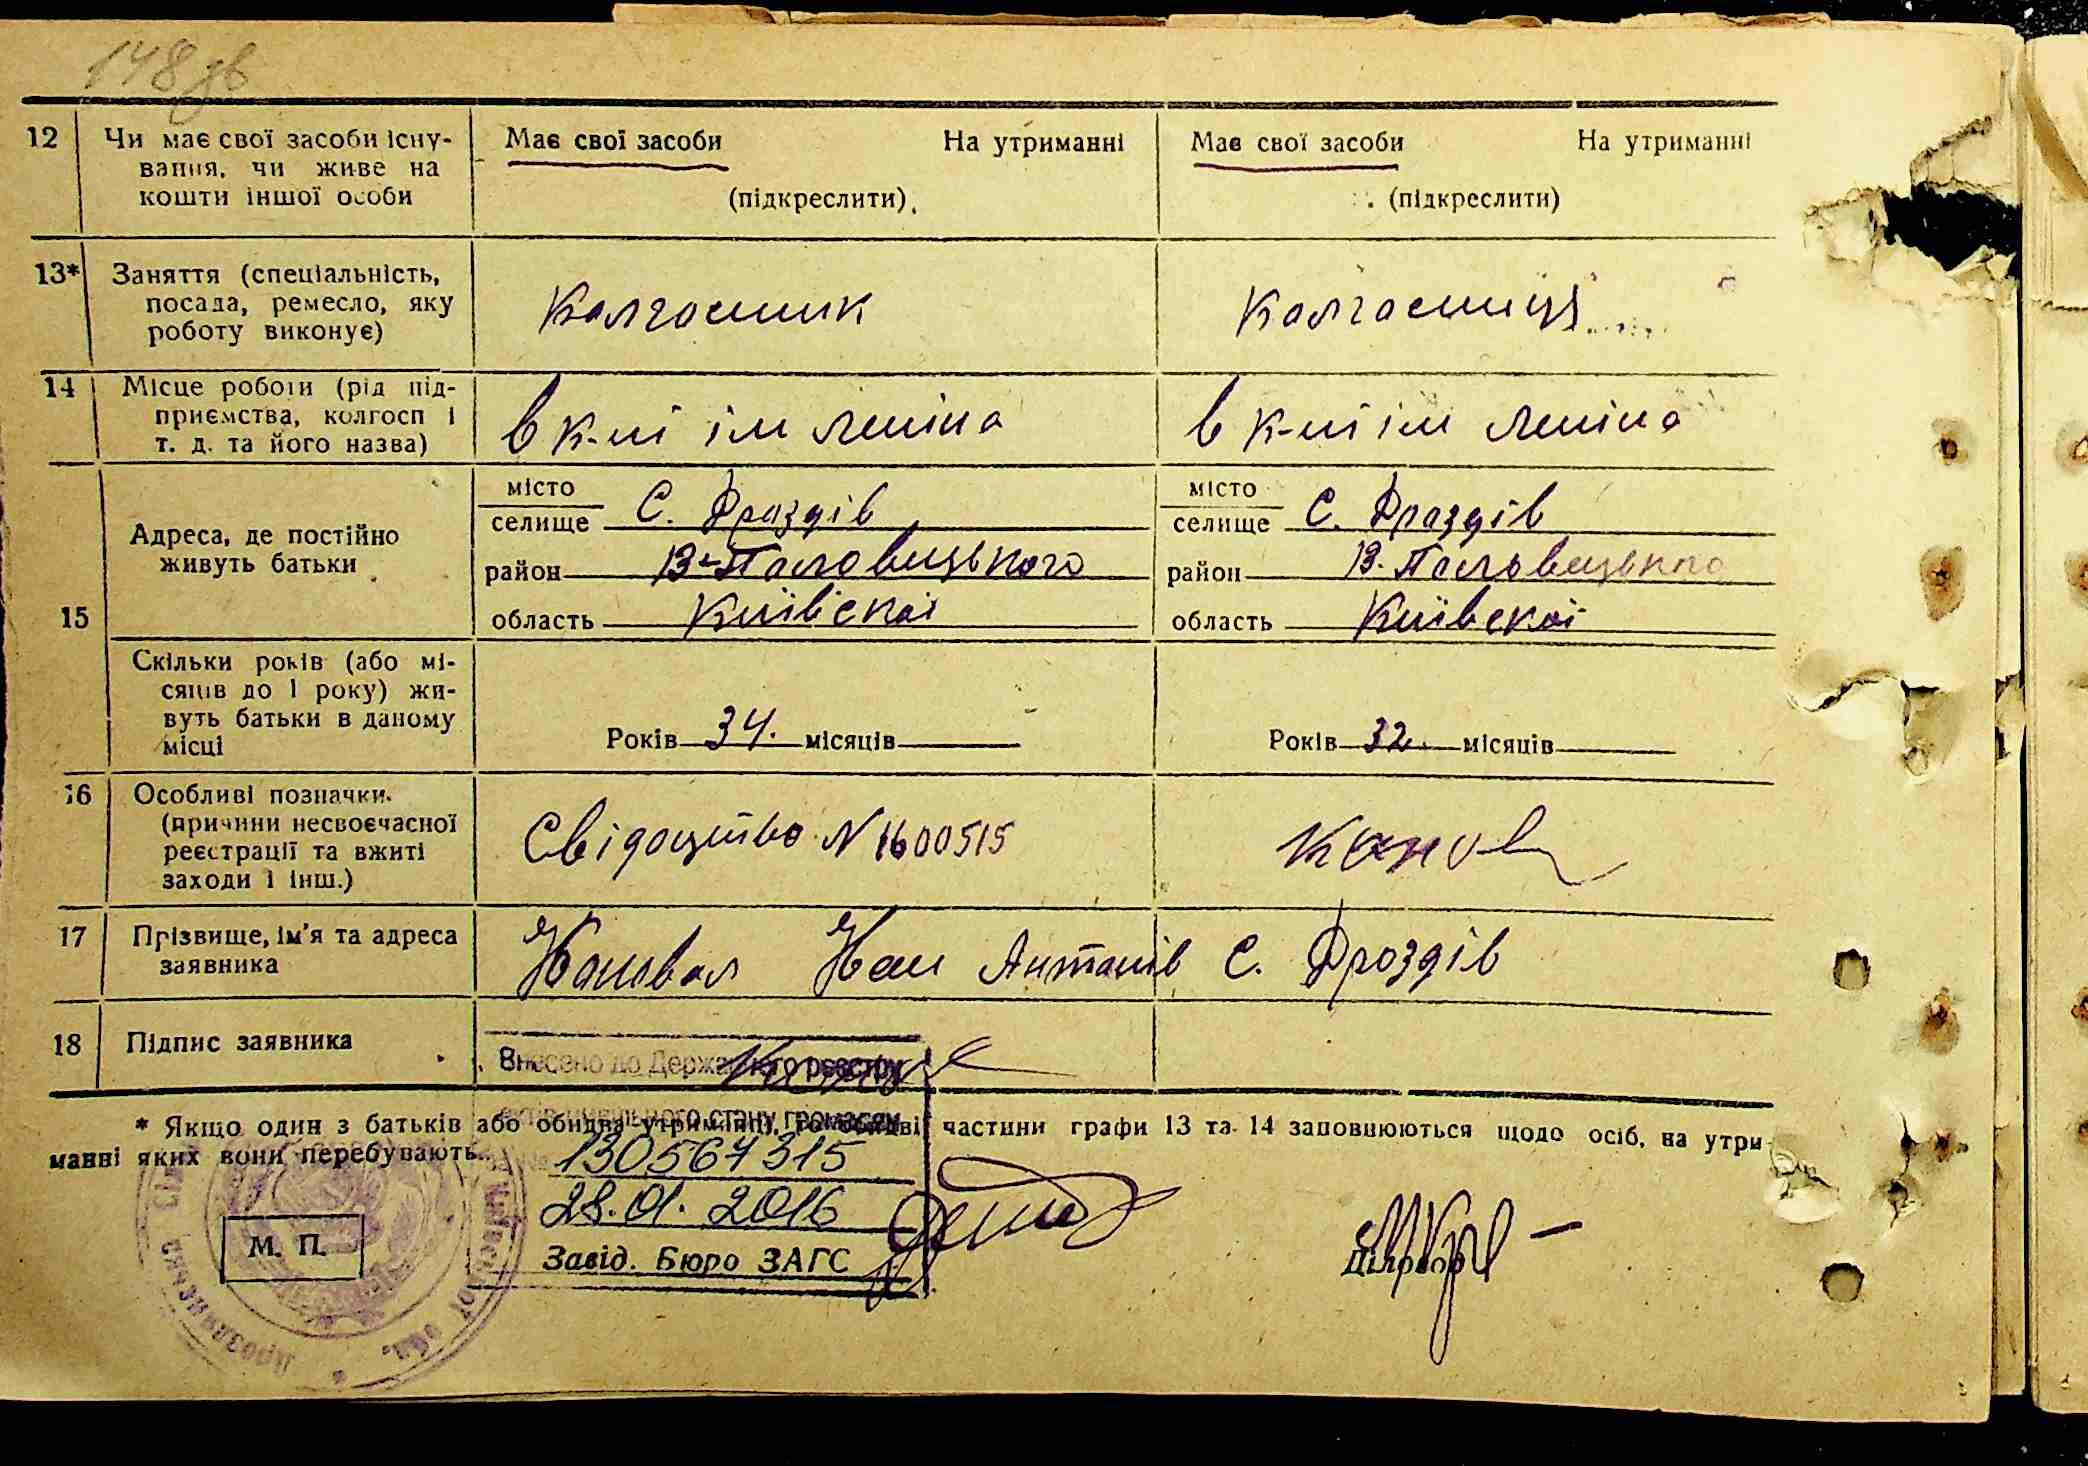 148 зв
12 Чи має свої засоби існу- Має свої засоби На утриманні Має свої засоби На утриманні
вання, чи живе на
кошти іншої особи (підкреслити) (підкреслити)
13* Заняття (спеціальність,
посада, ремесло, яку Колгоспник Колгоспниця
роботу виконує)
14 Місце роботи (рід під-
приємства, колгосп і в к-пі ім Леніна в к-пі ім Леніна
т. д. та його назва)
15 Адреса, де постійно
живуть батьки
місто
селище С. Дроздів
район В-Половецького
область Київскої
місто
селище С. Дроздів
район В. Половецького
область Київскої
Скільки років (або мі-
сяців до 1 року) жи-
вуть батьки в даному
місці
Років 34. місяців Років 32. місяців
16 Особливі позначки
(причини несвоєчасної
реєстрації та вжиті
заходи і інш.)
Свідоцтво N 1600515
17 Прізвище, ім'я та адреса
заявника
Іван С. Дроздів
18 Підпис заявника
Внесено до Державного реєстру
актів цивільного стану громадян
* Якщо один з батьків або обидва утриманці, то частини графи 13 та 14 заповнюються щодо осіб, на утри-
манні яких вони перебувають.
130567315
28.01.2016
Завід. Бюро ЗАГС
М. П.
Діловод